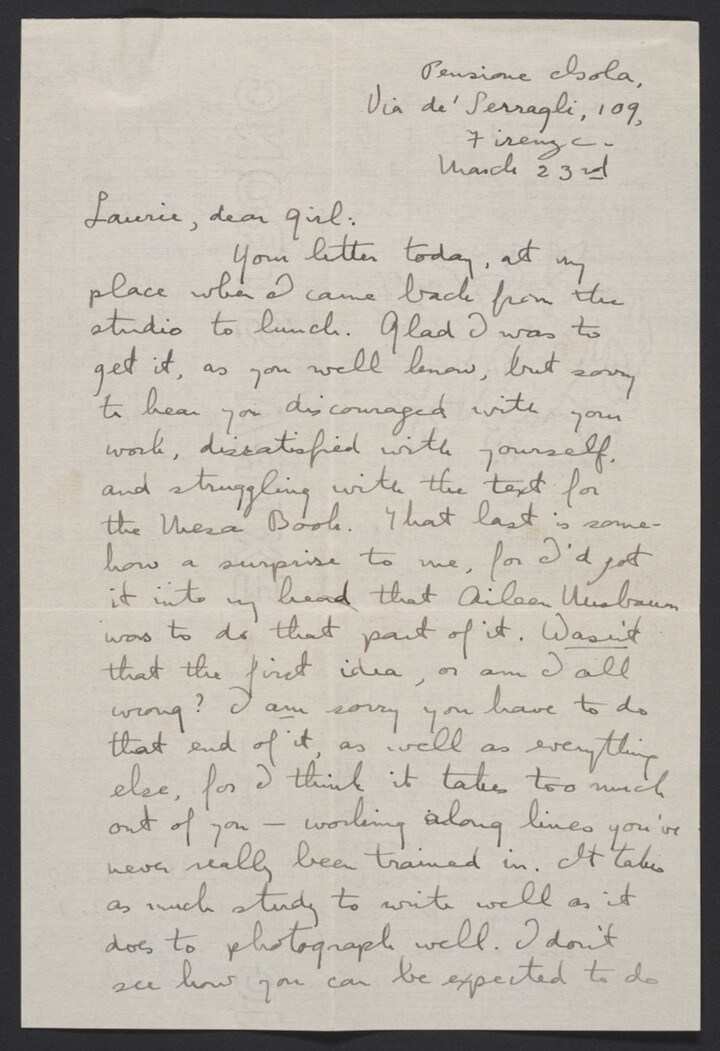 Pensione Isola,
Via de' Serragli, 109,
Firenze.
March 23rd
Laurie, dear girl:
Your letter today, at my
place when I came back from the
studio to lunch. Glad I was to
get it, as you well know, but sorry
to hear you discouraged with your
work, dissatisfied with yourself,
and struggling with the text for
the Mesa Book. That last is some-
how a surprise to me, for I'd got
it into my head that Aileen Nusbaum
was to do that part of it. Wasn't
that the first idea, or am I all
wrong? I am sorry you have to do
that end of it, as well as everything
else, for I think it takes too much
out of you – working along lines you've
never really been trained in. It takes
as much study to write well as it
does to photograph well. I don't
see how you can be expected to do